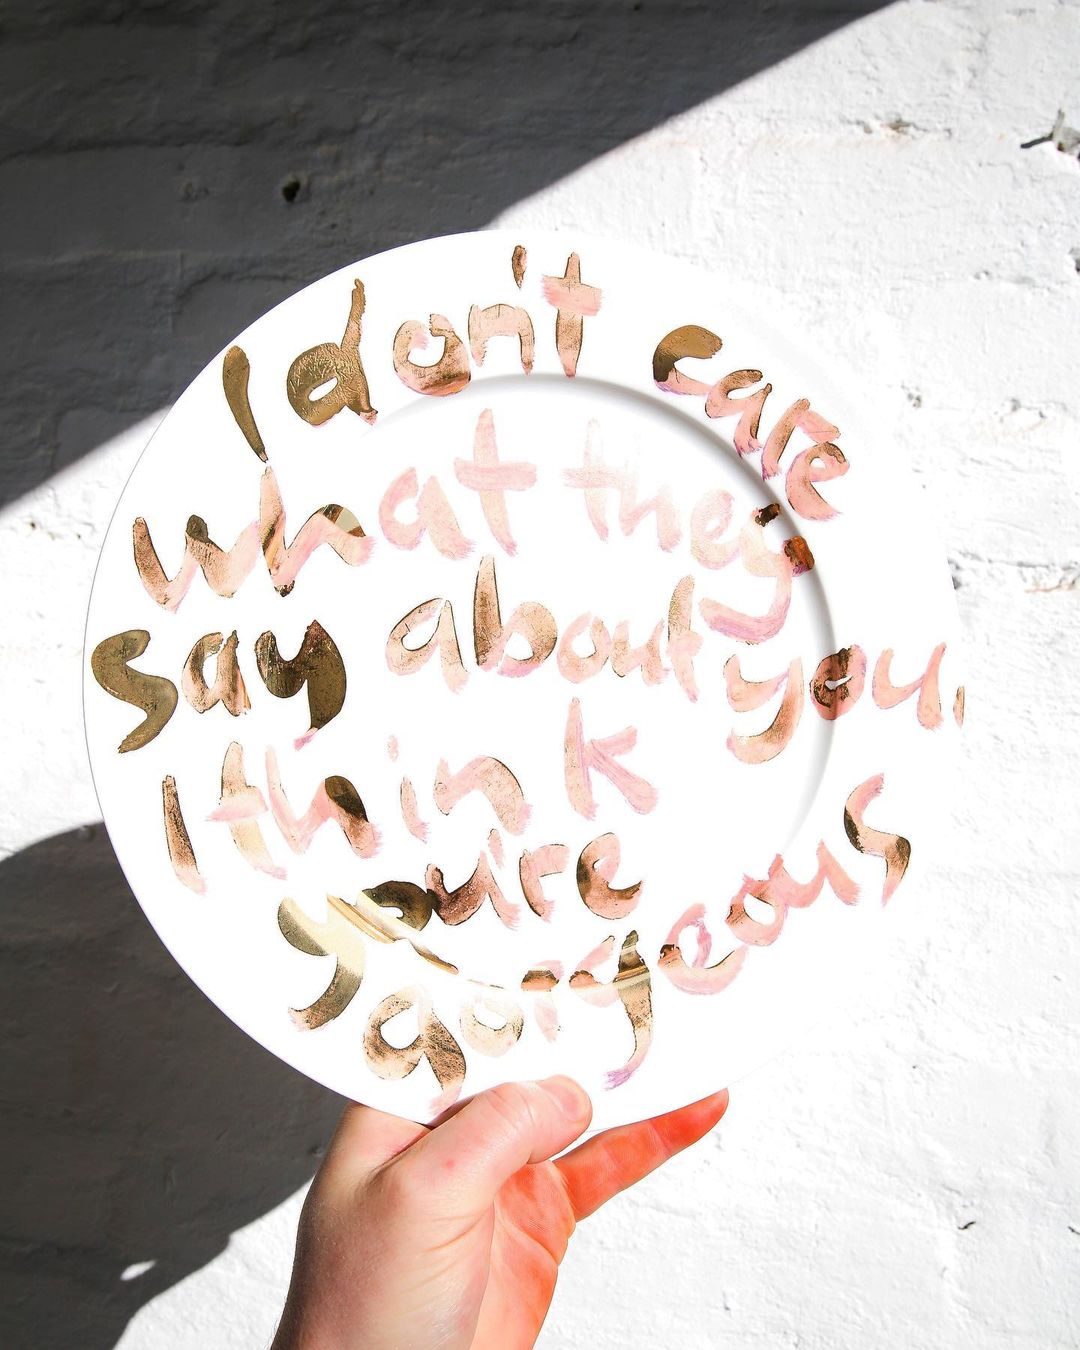 I don't care
what they
say about you.
I think
you're
gorgeous